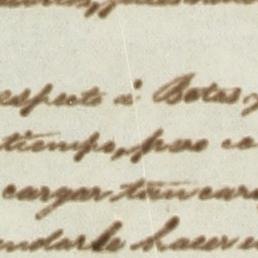 especto á Botas y
tiempo, pero co
cargar tan car
ndarle hacer u